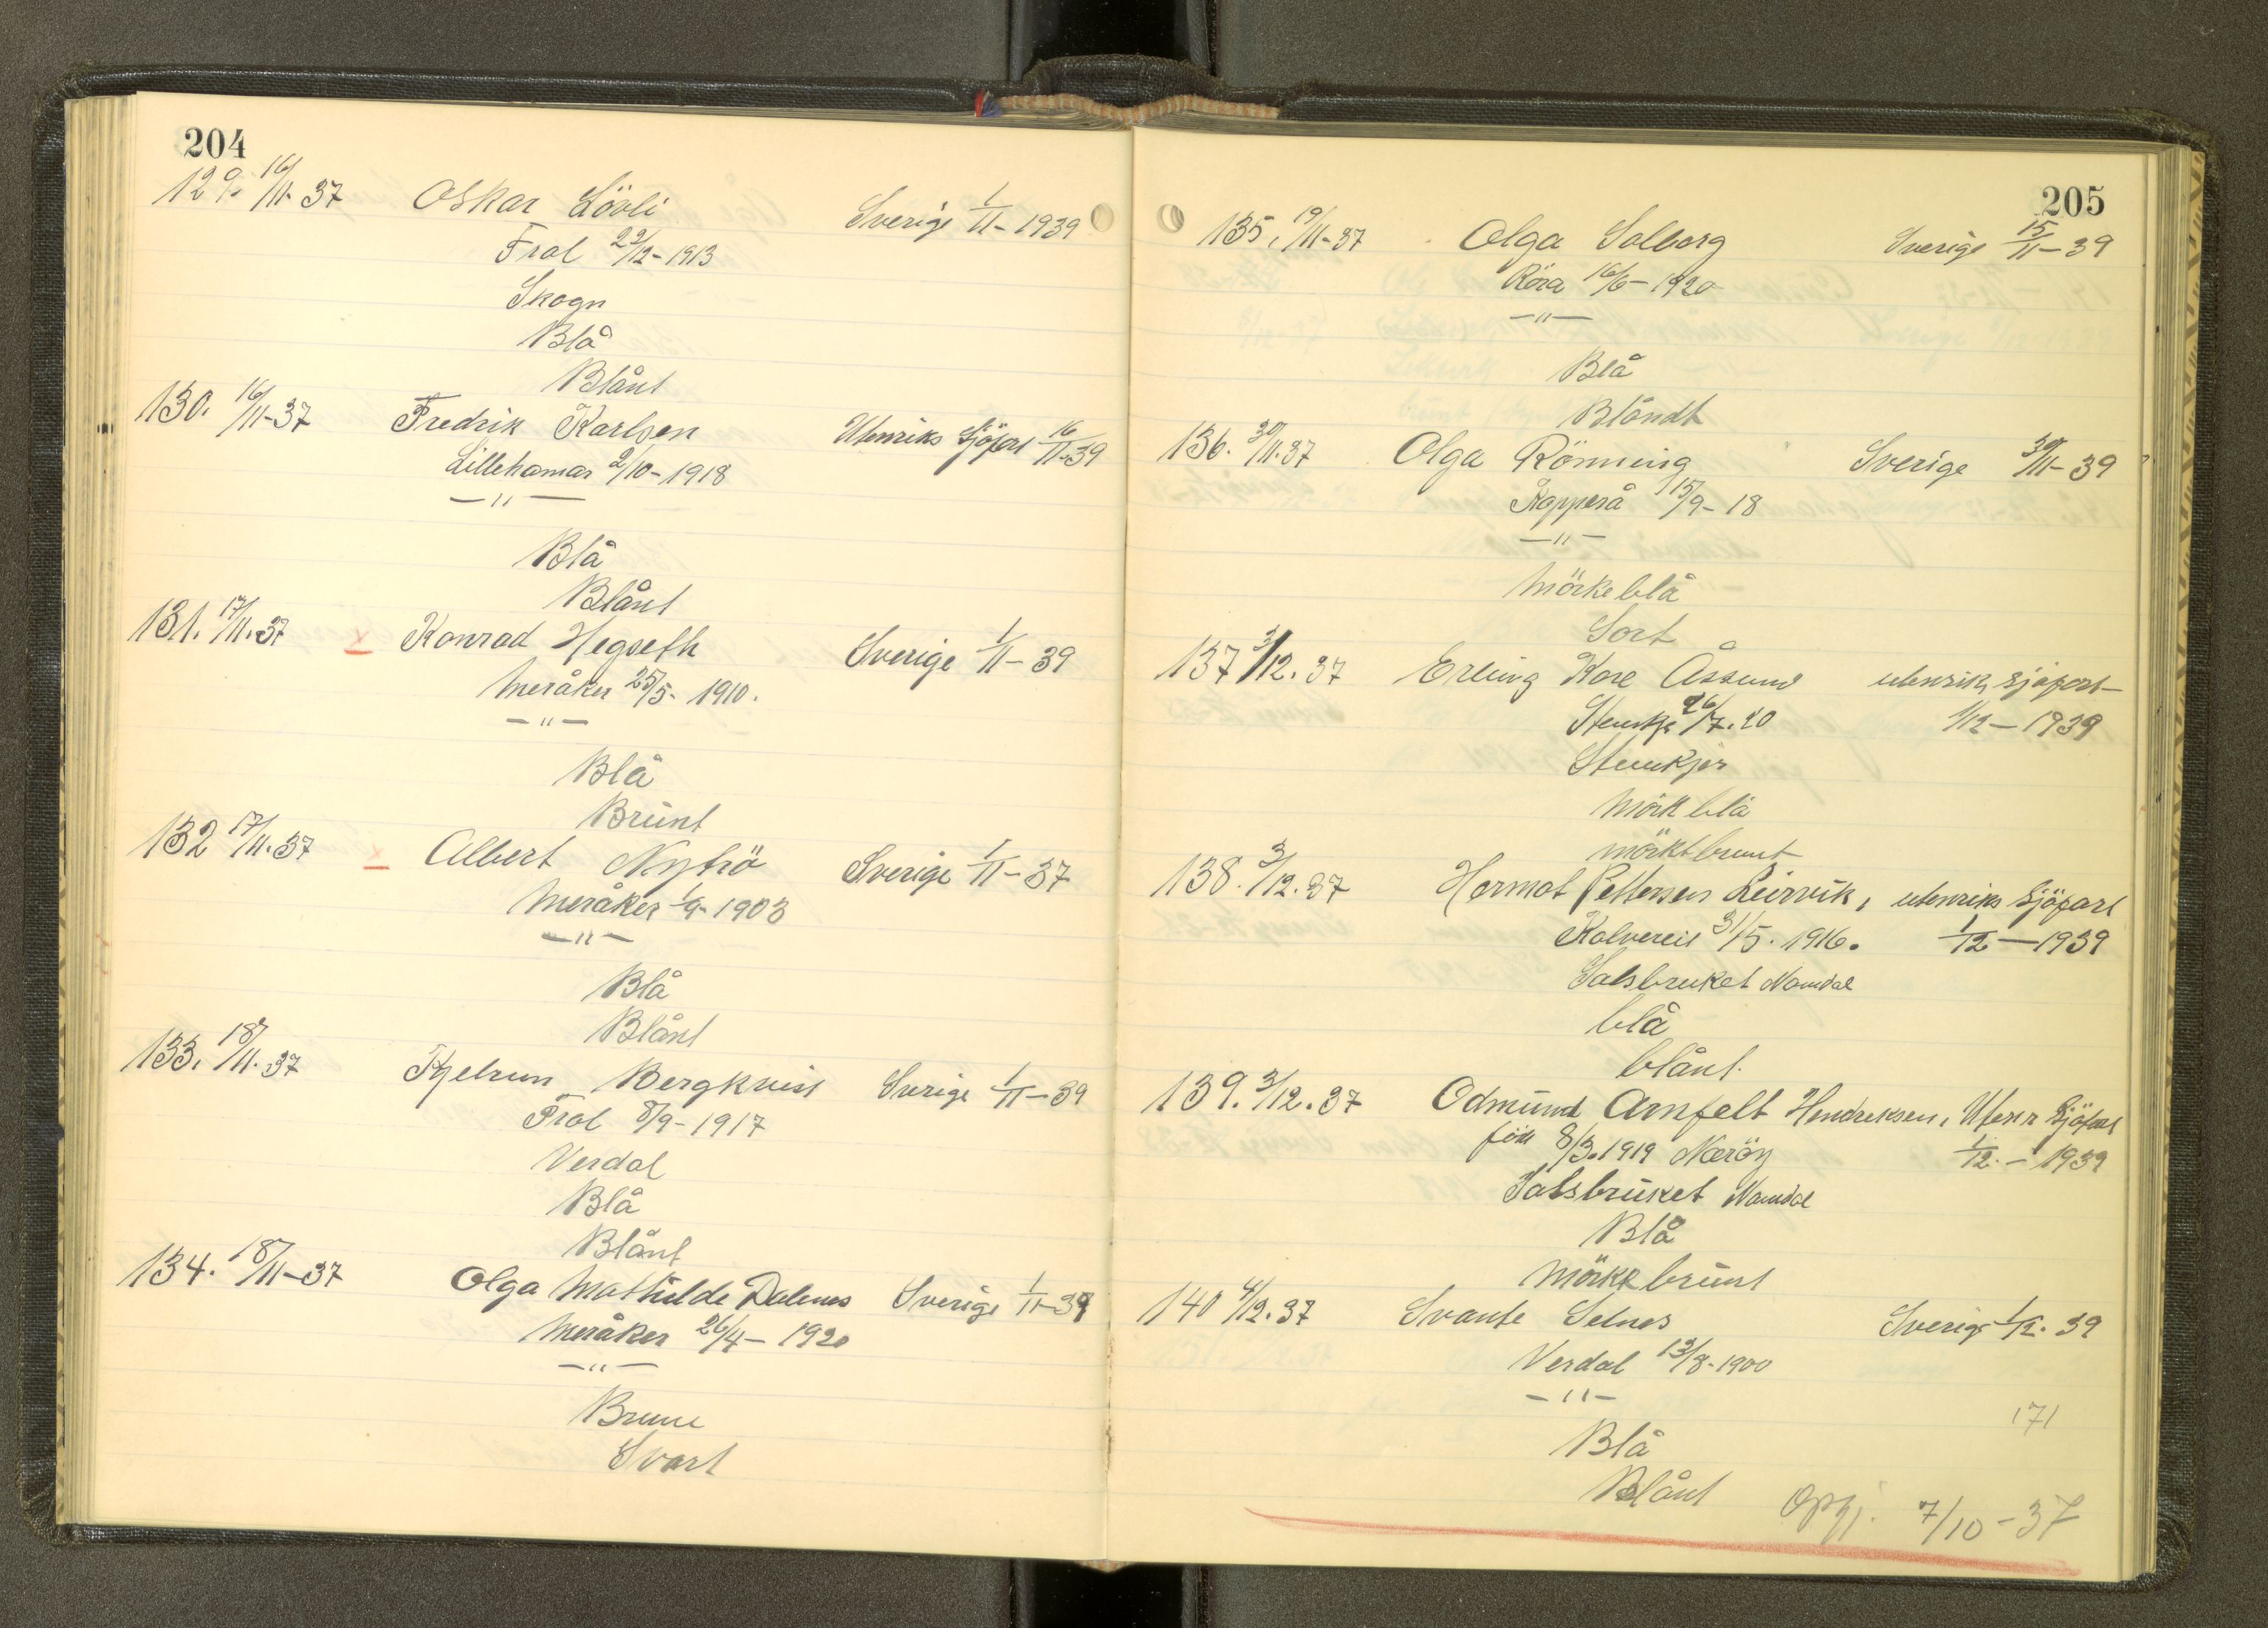 204
129. 16/11.37 Oskar Lövli Sverige 1/11-1939
Frol 22/12-1913
Skogn
Blå
Blånt
130. 16/11-37 Fredrik Karlsen Utenriks Sjöfart 16/11-39
Lillehamar 2/10-1918
—"—
Blå
Blånt
131. 17/11.37 x Konrad Hegseth Sverige 1/11-39
Meråker 25/5-1910.
—"—
Blå
Brunt
132 17/11.37 x Albert Nytrö Sverige 1/11-37
Meråker 1/9-1903
—"—
Blå
Blånt
133. 18/11.37 Kjelrun Bergkvist Sverige 1/11-39
Frol 8/9-1917
Verdal
Blå
Blånt
134. 18/11-37 Olga Mathilde Dalenes Sverige 1/11-39
Meråker 26/4-1920
—"—
Brune
Svart
205
135. 19/11-37 Olga Solborg Sverige 15/11-39
Röra 16/6-1920
—"—
Blå
Blåndt
136. 30/11.37 Olga Rönning Sverige 30/11-39
Kopperå 15/9-18
—"—
Mörkeblå
Sort
137 3/12.37 Erling Kare Åssund utenriks sjöfart—
Stenkjr 26/7.20 1/12-1939
Stenkjer
Mörk blå
mörkt brunt
138. 3/12.37 Hermot Pettersen Leirvik, utenriks Sjöfart
Kolvereid 31/5.1916. 1/12-1939
Salsbruket Namdal
blå
blånt.
139. 3/12.37 Odmund Arnfelt Hendriksen, Utenr Sjöfart
föd 8/3.1919 Næröy 1/12.-1939
Salsbruket Namdal
Blå
Mörke brunt
140 4/12.37 Svante Selnes Sverige 1/12.39
Verdal 13/8-1900
—"—
171
Blå
Blånt
Opgj. 7/10-37